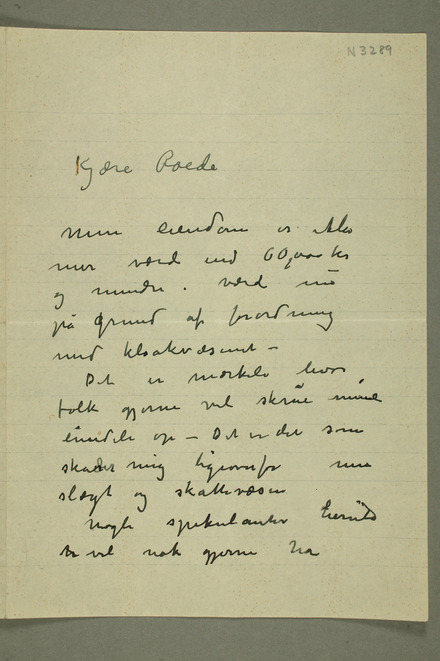 N 3289
Kjære Roede
Min eiendom er ikke
mer værd end 60,000 kr
og mindre. værd nu
på grund af forordning
med kloakvæsenet –
Det er mærkeli hvor
folk gjerne vil skrue mine
eiendele op – Det er det som
skader mig ligeoverfor min
slægt og skattevæsen
Nogle spekulanter
vil nok gjerne ha